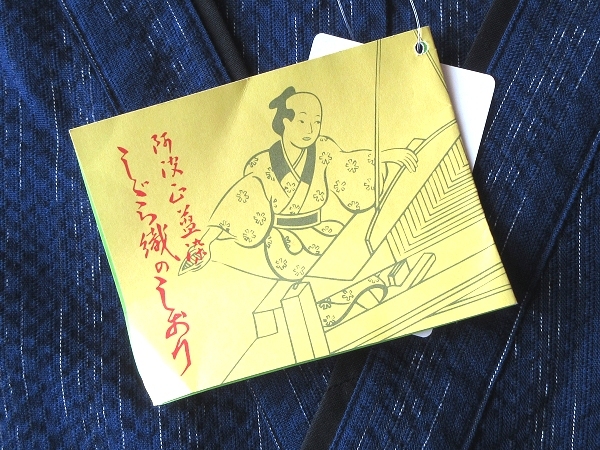 阿波正藍染
しじら織のしおり